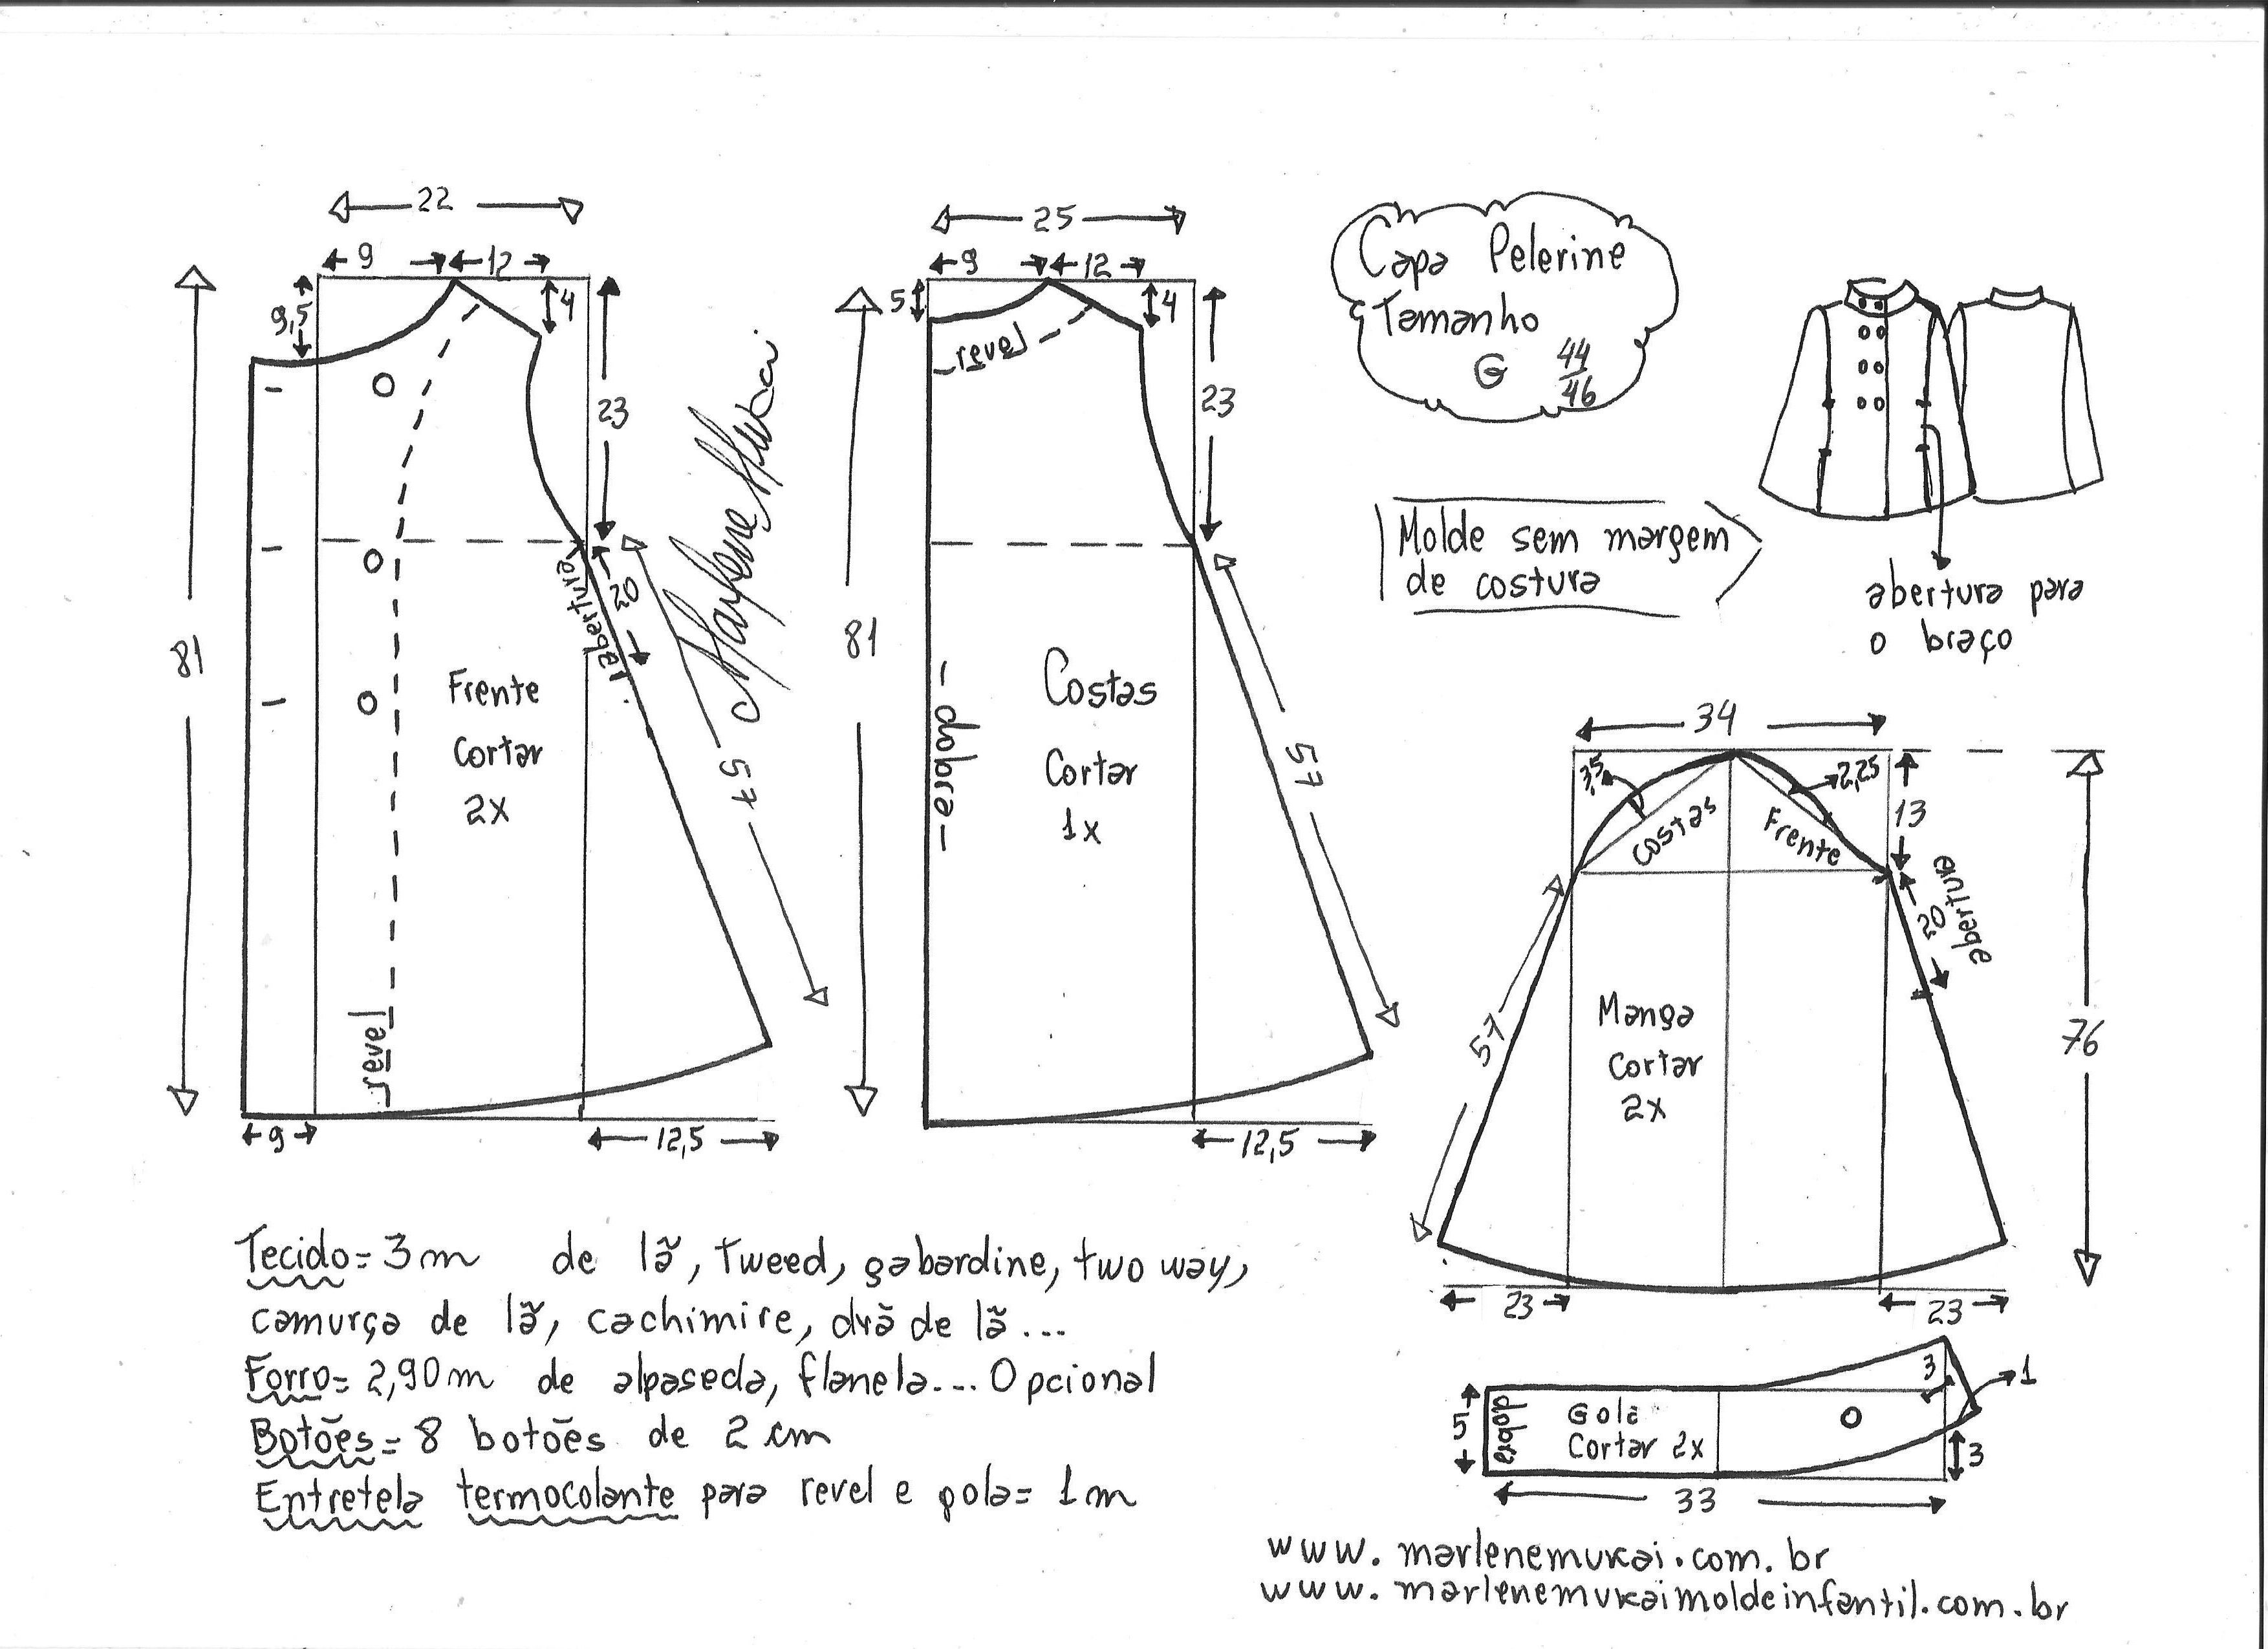 22
9
12
9,5
4
23
81
20
abertura
57
Frente
Cortar
2x
revel
9
12,5
Marlene Mukai
25
9
12
5
4
revel
23
81
dobra
Costas
Cortar
1x
57
12,5
Capa Pelerine
Tamanho
G 44/46
Molde sem margem
de costura
abertura para
o braço
34
3,5
2,25
13
Costas
Frente
20
abertura
57
Manga
cortar
2x
76
23
23
3
1
5
dobra
Gola
Cortar 2x
3
33
Tecido= 3m de lã, tweed, gabardine, two way,
camurça de lã, cachimire, drã de lã...
Forro= 2,90m de alpaseda, flanela... Opcional
Botões= 8 botões de 2 cm
Entretela termocolante para revel e gola= 1m
www.marlenemukai.com.br
www.marlenemukaimoldeinfantil.com.br